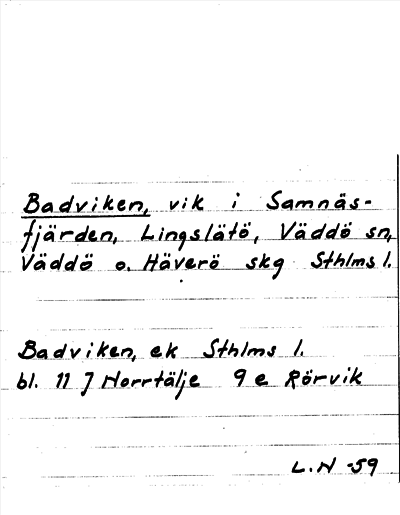 Badviken, vik i Samnäs-
fjärden, Lingslätö, Väddö sn,
Väddö o. Häverö skg Sthlms l.
Badviken, ek Sthlms l.
bl. 11 J Norrtälje 9 e Rörvik
L.N -59